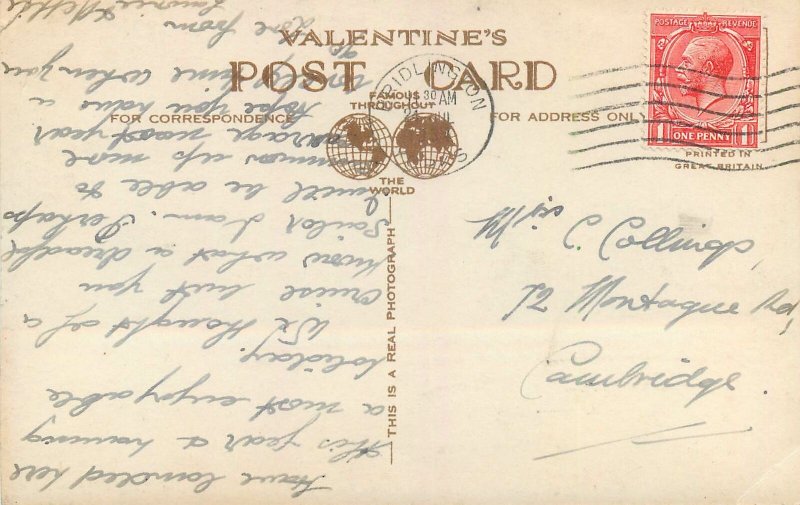 VALENTINE'S
POST CARD
FAMOUS
THROUGHOUT
THE
WORLD
FOR CORRESPONDENCE
FOR ADDRESS ONLY
PRINTED IN
GREAT BRITAIN
THIS IS A REAL PHOTOGRAPH
POSTAGE REVENUE
1 ONE PENNY 1
BRIDLINGTON
30 AM
JUL
Have landed here
this year & having
a most enjoyable
holiday.
We thought of a
cruise but you
know what a dreadful
sailor I am. Perhaps
I will be able to
summons up more
courage next year
Hope you have a
lovely time when you
go
Love from
Maurice & Nellie
Miss C. Collings,
72 Montague Rd,
Cambridge